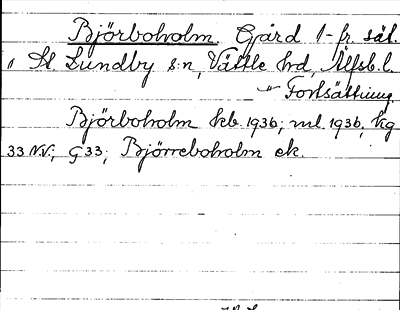 Björboholm Gård 1 fr. sät.
" St Lundby sn, Vättle hd, Älfsb. l.
" Fortsättning
Björboholm kb. 1936; ml. 1936, kg
33 NV; G 33; Björreboholm ek.